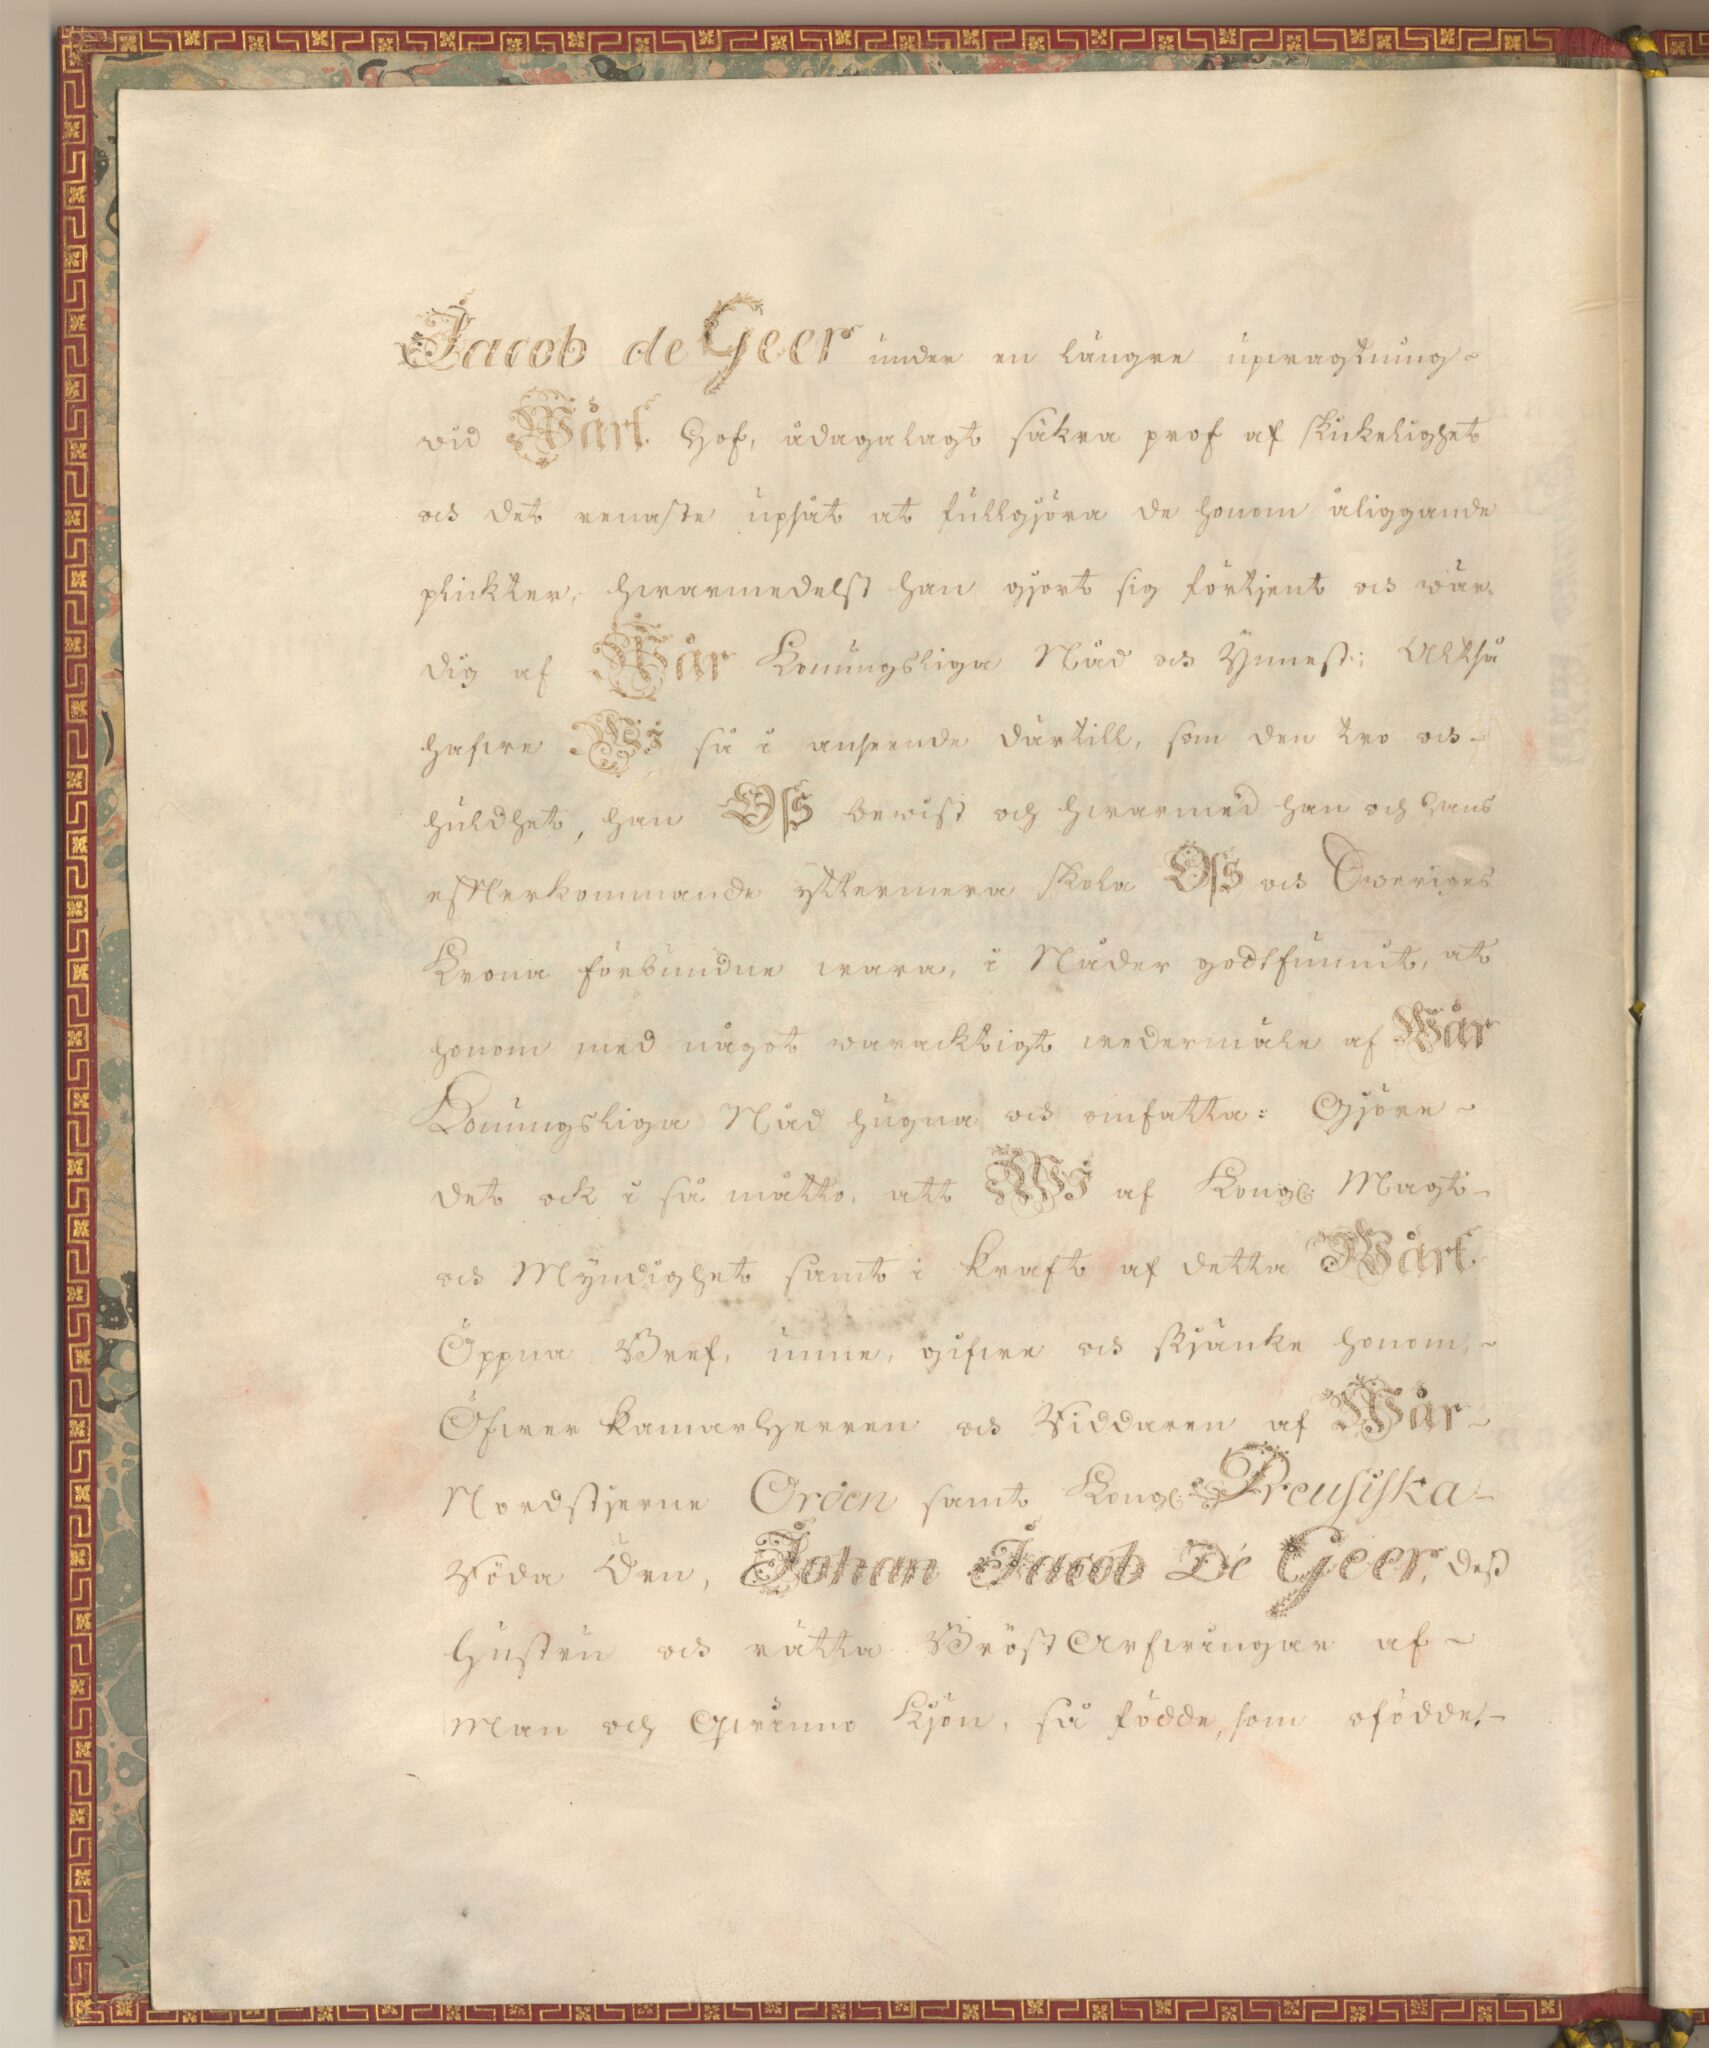 Jacob de Geer under en längre upwagtning
wid Wårt Hof, ådagalagt säkra prof af skickelighet
och det renaste upsåt at fullgjöra de honom åliggande
plickter, hwarmedelst han gjort sig förtjent och wär-
dig af Wår Konungsliga Nåd och Ynnest; Altså
hafwe Wi så i anseende därtill, som den tro och
huldhet, han Oss bewist och hwarmed han och hans
efterkommande yttermera skola Oss och Sweriges
Krona förbundne wara, i Nåder godtfunnit, at
honom med något warachtigt wedermäle af Wår
Konungsliga Nåd hugna och omfatta: Gjöre
det ock i så måtto, att Wi af Kongl. Magt
och Myndighet samt i kraft af detta Wårt
Öppna Bref, unne, gifwe och skjänke honom,
Öfwer KammarHerren och Riddaren af Wår
Nordstjerne Orden samt Kongl. Preusiska
Röda Örn, Johan Jacob De Geer, dess
Hustru och rätta BröstArfwingar af
Man och Qwinno Kjön, så födde, som ofödde,